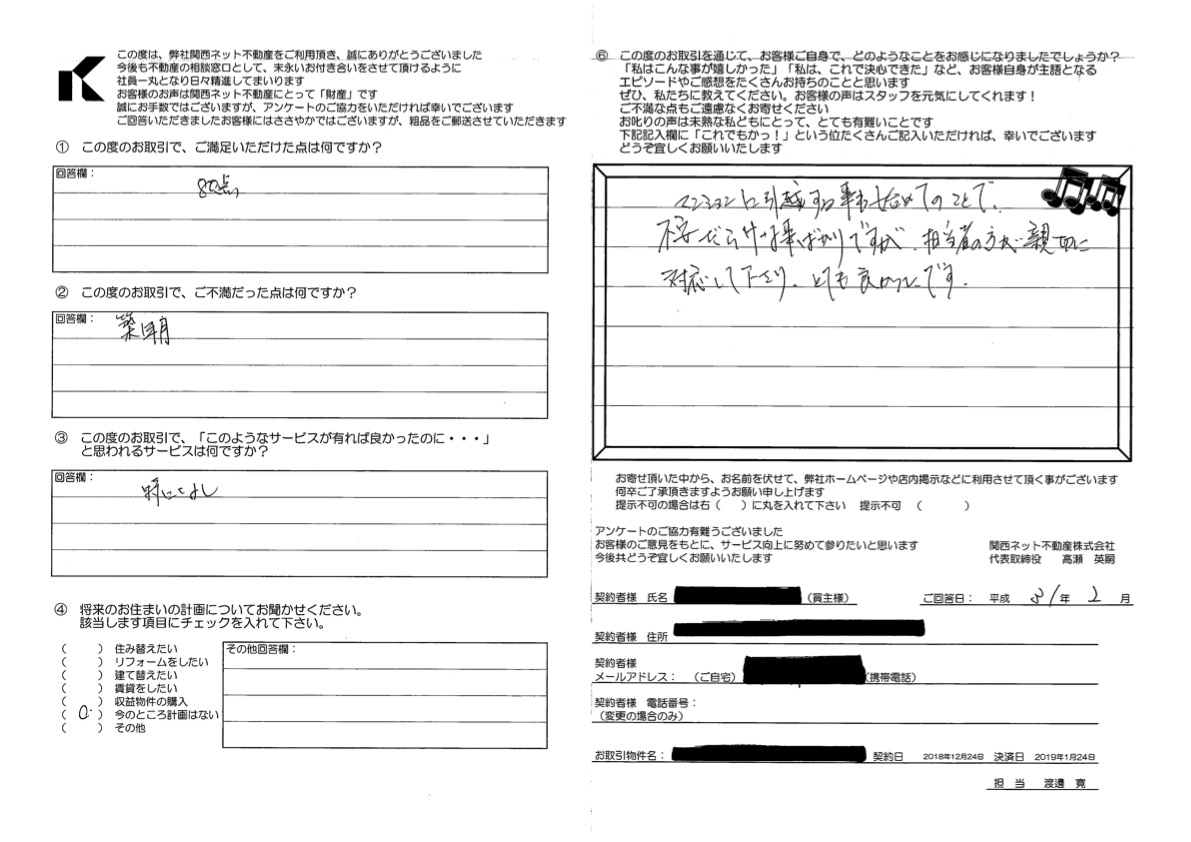 この度は、弊社関西ネット不動産をご利用頂き、誠にありがとうございました
今後も不動産の相談窓口として、末永いお付き合いをさせて頂けるように
社員一丸となり日々精進してまいります
お客様のお声は関西ネット不動産にとって「財産」です
誠にお手数ではございますが、アンケートのご協力をいただければ幸いでございます
ご回答いただきましたお客様にはささやかではございますが、粗品をご郵送させていただきます
① この度のお取引で、ご満足いただけた点は何ですか？
回答欄：
80点
② この度のお取引で、ご不満だった点は何ですか？
回答欄：
築年月
③ この度のお取引で、「このようなサービスが有れば良かったのに・・・」
と思われるサービスは何ですか？
回答欄：
特になし
④ 将来のお住まいの計画についてお聞かせください。
該当します項目にチェックを入れて下さい。
（　　） 住み替えたい
（　　） リフォームをしたい
（　　） 建て替えたい
（　　） 賃貸をしたい
（　　） 収益物件の購入
（ ○ ） 今のところ計画はない
（　　） その他
その他回答欄：
⑥ この度のお取引を通じて、お客様ご自身で、どのようなことをお感じになりましたでしょうか？
「私はこんな事が嬉しかった」「私は、これで決心できた」など、お客様自身が主語となる
エピソードやご感想をたくさんお持ちのことと思います
ぜひ、私たちに教えてください。お客様の声はスタッフを元気にしてくれます！
ご不満な点もご遠慮なくお寄せください
お叱りの声は未熟な私どもにとって、とても有難いことです
下記記入欄に「これでもかっ！」という位たくさんご記入いただければ、幸いでございます
どうぞ宜しくお願いいたします
マンションに引越する事も始めてのことで、
不安だらけの事ばかりですが、担当者の方が親切に
対応して下さり、とても良かったです。
お寄せ頂いた中から、お名前を伏せて、弊社ホームページや店内掲示などに利用させて頂く事がございます
何卒ご了承頂きますようお願い申し上げます
提示不可の場合は右（　　）に丸を入れて下さい　提示不可　（　　　）
アンケートのご協力有難うございました
お客様のご意見をもとに、サービス向上に努めて参りたいと思います
今後共どうぞ宜しくお願いいたします
関西ネット不動産株式会社
代表取締役　高瀬　英嗣
契約者様 氏名 （買主様） ご回答日： 平成 31年 2 月
契約者様 住所
契約者様
メールアドレス： （ご自宅） （携帯電話）
契約者様 電話番号：
（変更の場合のみ）
お取引物件名： 契約日 2018年12月24日 決済日 2019年1月24日
担 当 渡邊 寛